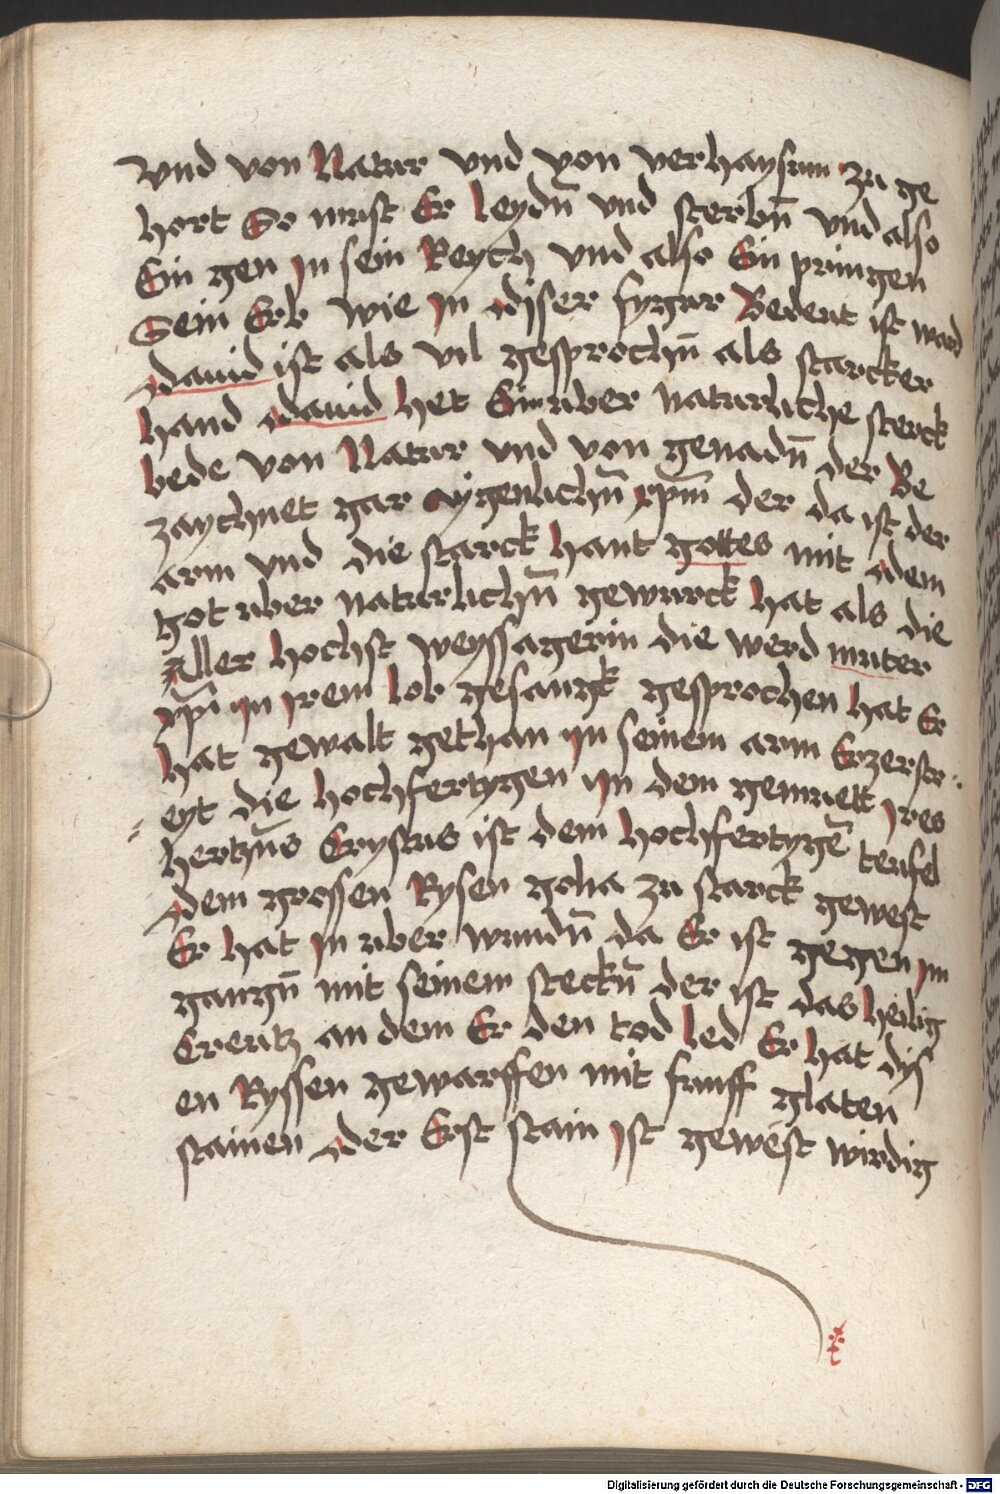 vnd von Natur vnd von verhaysum zu ge
hort Er must Er leydn̄ vnd sterbn̄ vnd also
Ein gen in sein Reych vnd also Ein pringen
Sein Erb wie in diser fygur Bedeut ist ward
dauid ist als vil gesprochn̄ als starcker
hand dauid het Ein uber naturliche sterck
bede von Natur vnd von genadn̄ der Be
zaychnet gar aygenlichn̄ xp̄m der da ist der
arm vnd die starck hant gottes mit dem
got uber naturlichn̄ gewurck hat als die
Aller hochst weyssagerin die werd muter
xp̄i in irem lob gesangk gesprochen hat Er
hat gewalt gethan in seinem arm Er zerstr
eyt die hochfertygen in dem gemuett ires
hertzn̄s Crystus ist dem hochfertygē teufel
dem grossen Rysen golia zu starck gewest
Er hat in uber wundn̄ da Er ist gegen im
gangn̄ mit seinem steckn̄ der ist das heilig
Creutz an dem Er den tod led Er hat dis
en Ryssen gewarffen mit funff glaten
stainen der Erst stain ist gewest wirdig
Digitalisierung gefördert durch die Deutsche Forschungsgemeinschaft - DFG